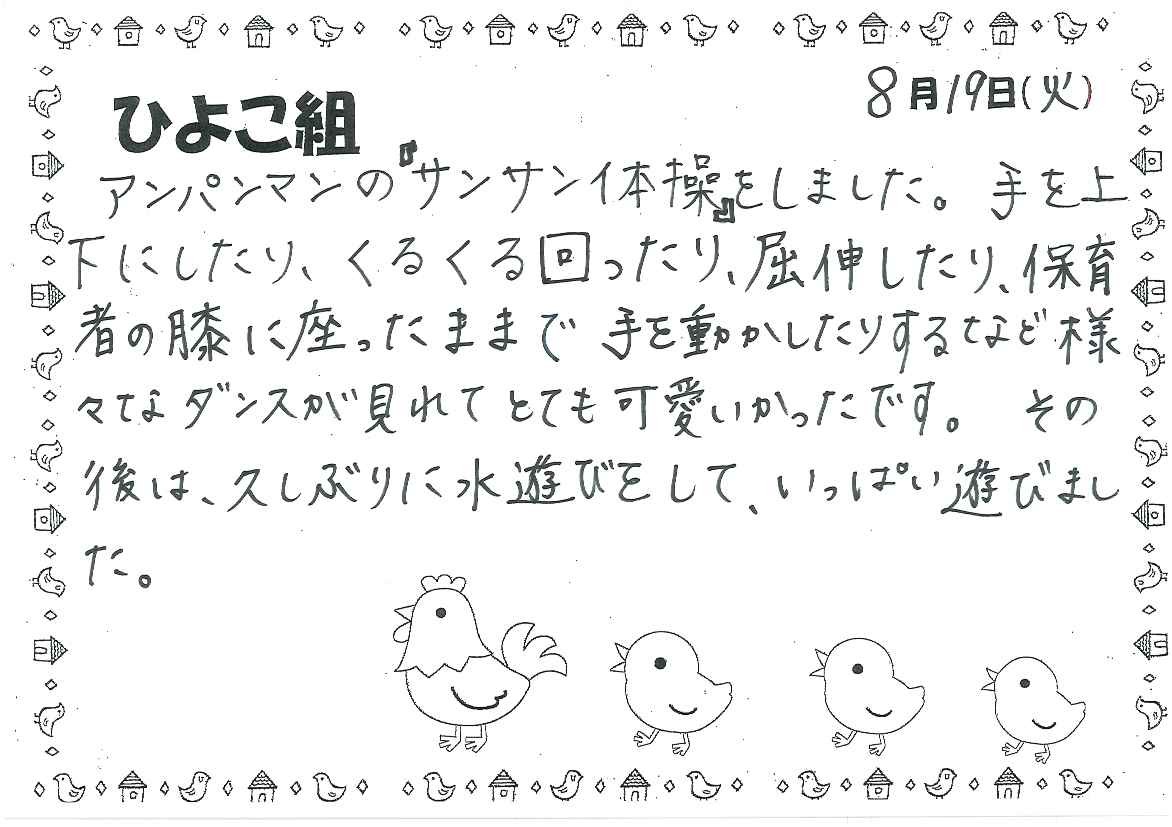 8月19日(火)
ひよこ組
アンパンマンの『サンサン体操』をしました。 手を上
下にしたり、くるくる回ったり、屈伸したり、保育
者の膝に座ったままで 手を動かしたりするなど様
々なダンスが見れてとても可愛いかったです。 その
後は、久しぶりに水遊びをして、いっぱい遊びまし
た。